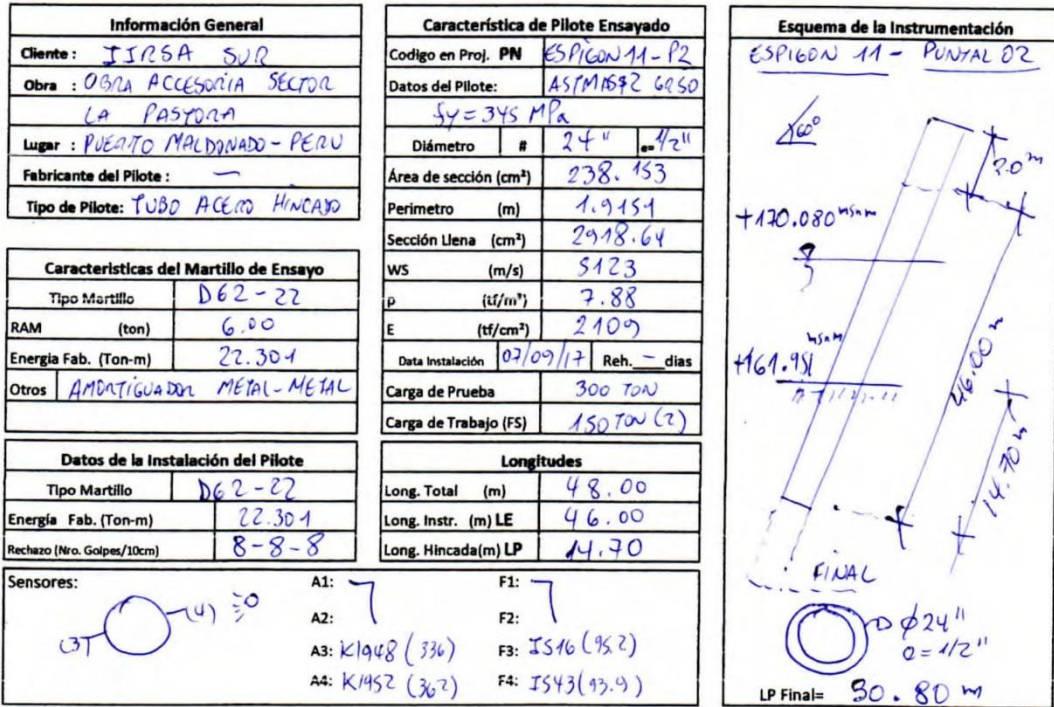 Información General
Cliente : IIRSA SUR
Obra : OBRA ACCESORIA SECTOR
LA PASTORA
Lugar : PUERTO MALDONADO - PERU
Fabricante del Pilote : —
Tipo de Pilote: TUBO ACERO HINCADO
Caracteristicas del Martillo de Ensayo
Tipo Martillo D62-22
RAM (ton) 6.00
Energia Fab. (Ton-m) 22.301
Otros AMORTIGUADOR METAL-METAL
Datos de la Instalación del Pilote
Tipo Martillo D62-22
Energía Fab. (Ton-m) 22.301
Rechazo (Nro. Golpes/10cm) 8-8-8
Característica de Pilote Ensayado
Codigo en Proj. PN ESPIGON 11-P2
Datos del Pilote: ASTM A572 GR50
fy = 345 MPa
Diámetro # 24" e= 1/2"
Área de sección (cm²) 238.153
Perimetro (m) 1.9151
Sección Llena (cm²) 2918.64
WS (m/s) 5123
ρ (tf/m³) 7.88
E (tf/cm²) 2109
Data Instalación 07/09/17 Reh. — dias
Carga de Prueba 300 TON
Carga de Trabajo (FS) 150 TON (2)
Longitudes
Long. Total (m) 48.00
Long. Instr. (m) LE 46.00
Long. Hincada(m) LP 14.70
Sensores:
(3) (4)
A1: F1:
A2: F2:
A3: K1948 (336) F3: IS16 (95.2)
A4: K1952 (362) F4: IS43 (93.9)
Esquema de la Instrumentación
ESPIGON 11 - PUNTAL 02
60°
2.0 m
+170.080 msnm
msnm
+161.951
46.00 m
14.70 m
FINAL
Ø24"
e=1/2"
LP Final= 30.80 m